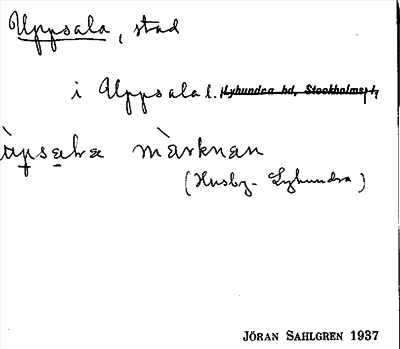 Uppsala, stad
i Uppsala l. Lyhundra hd, Stockholms l.
märknan
(Husby-Lyhundra)
JÖRAN SAHLGREN 1937